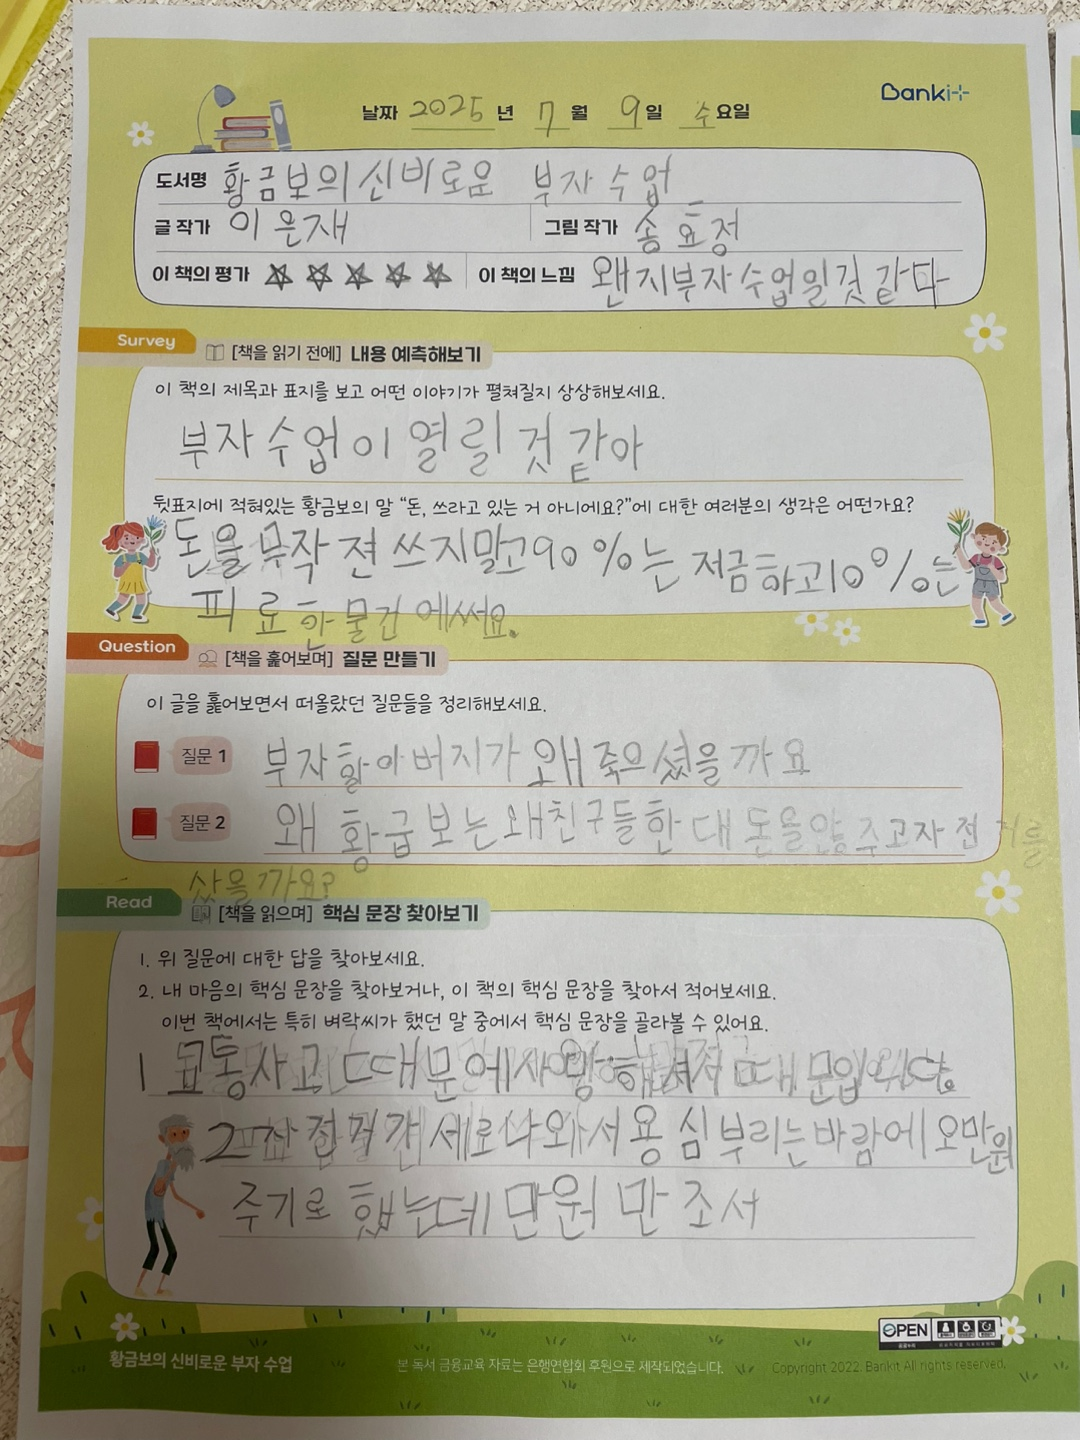 Banki+
날짜 2025 년 7 월 9 일 수 요일
도서명 황금보의 신비로운 부자 수업
글 작가 이은재 그림 작가 송효정
이 책의 평가 ☆☆☆☆☆ 이 책의 느낌 왠지부자수업일것 같다
Survey [책을 읽기 전에] 내용 예측해보기
이 책의 제목과 표지를 보고 어떤 이야기가 펼쳐질지 상상해보세요.
부자 수업이 열릴 것 같아
뒷표지에 적혀있는 황금보의 말 “돈, 쓰라고 있는 거 아니에요?”에 대한 여러분의 생각은 어떤가요?
돈을 무작 젼 쓰지말고 90%는 저금하고 10%는
피료한 물건에써요.
Question [책을 훑어보며] 질문 만들기
이 글을 훑어보면서 떠올랐던 질문들을 정리해보세요.
질문 1 부자 할아버지가 왜 죽으셨을까요
질문 2 왜 황급보는 왜친구들한대 돈을안주고자전거를
샀을까요?
Read [책을 읽으며] 핵심 문장 찾아보기
1. 위 질문에 대한 답을 찾아보세요.
2. 내 마음의 핵심 문장을 찾아보거나, 이 책의 핵심 문장을 찾아서 적어보세요.
이번 책에서는 특히 벼락씨가 했던 말 중에서 핵심 문장을 골라볼 수 있어요.
1 사고 때문에
2 나와서 용심부리는바람에 오만원
주기로 했는데 만원 만 조서
황금보의 신비로운 부자 수업
본 독서 금융교육 자료는 은행연합회 후원으로 제작되었습니다.
OPEN
Copyright 2022. Bankit All rights reserved.